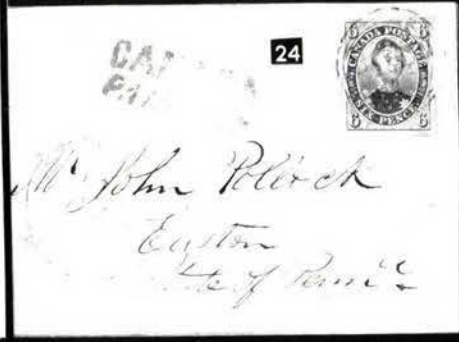 24
CANADA POSTAGE
6 6
SIX PENCE
6 6
Mr John Pollock
Easton
State of Penn